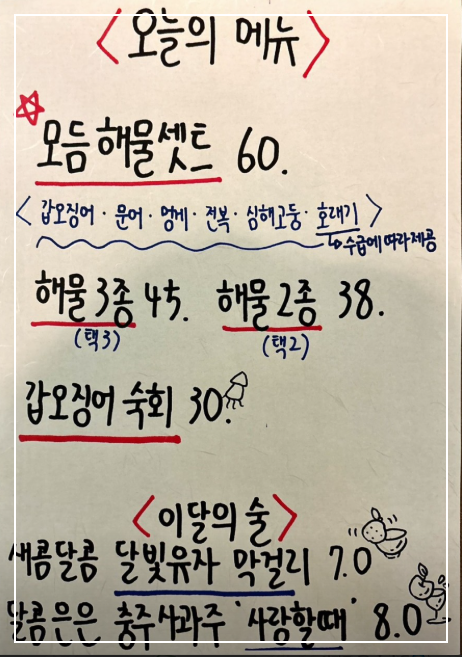 <오늘의 메뉴>
모듬 해물셋트 60.
<갑오징어·문어·멍게·전복·심해고둥·호래기>
↳수급에 따라 제공
해물 3종 45. 해물 2종 38.
(택3) (택2)
갑오징어 숙회 30.
<이달의 술>
새콤달콤 달빛유자 막걸리 7.0
달콤은은 충주사과주 '사랑할때' 8.0